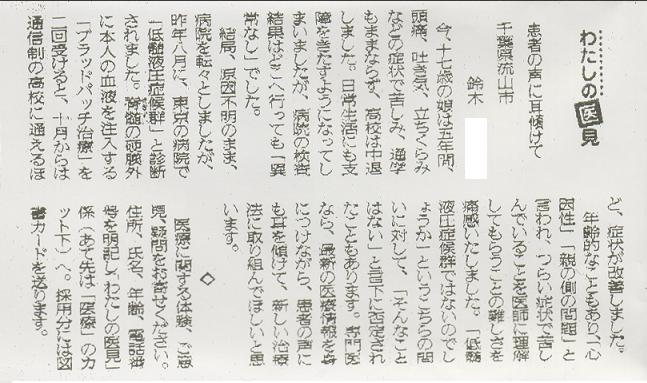 わたしの医見
患者の声に耳傾けて
千葉県流山市
鈴木
今、十七歳の娘は五年間、
頭痛、吐き気、立ちくらみ
などの症状で苦しみ、通学
もままならず、高校は中退
しました。日常生活にも支
障をきたすようになってし
まいましたが、病院の検査
結果はどこへ行っても「異
常なし」でした。
結局、原因不明のまま、
病院を転々としましたが、
昨年八月に、東京の病院で
「低髄液圧症候群」と診断
されました。脊髄の硬膜外
に本人の血液を注入する
「ブラッドパッチ治療」を
二回受けると、十月からは
通信制の高校に通えるほ
ど、症状が改善しました。
年齢的なこともあり、「心
因性」「親の側の問題」と
言われ、つらい症状で苦し
んでいることを医師に理解
してもらうことの難しさを
痛感いたしました。「低髄
液圧症候群ではないのでし
ょうか」というこちらの問
いに対して、「そんなこと
はない」と言下に否定され
たこともあります。専門医
なら、最新の医療情報を身
につけながら、患者の声に
も耳を傾けて、新しい治療
法に取り組んでほしいと思
います。
◇
医療に関する体験、ご意
見、疑問をお寄せください。
住所、氏名、年齢、電話番
号を明記し「わたしの医見」
係（あて先は「医療」のカ
ット下）へ。採用分には図
書カードを送ります。